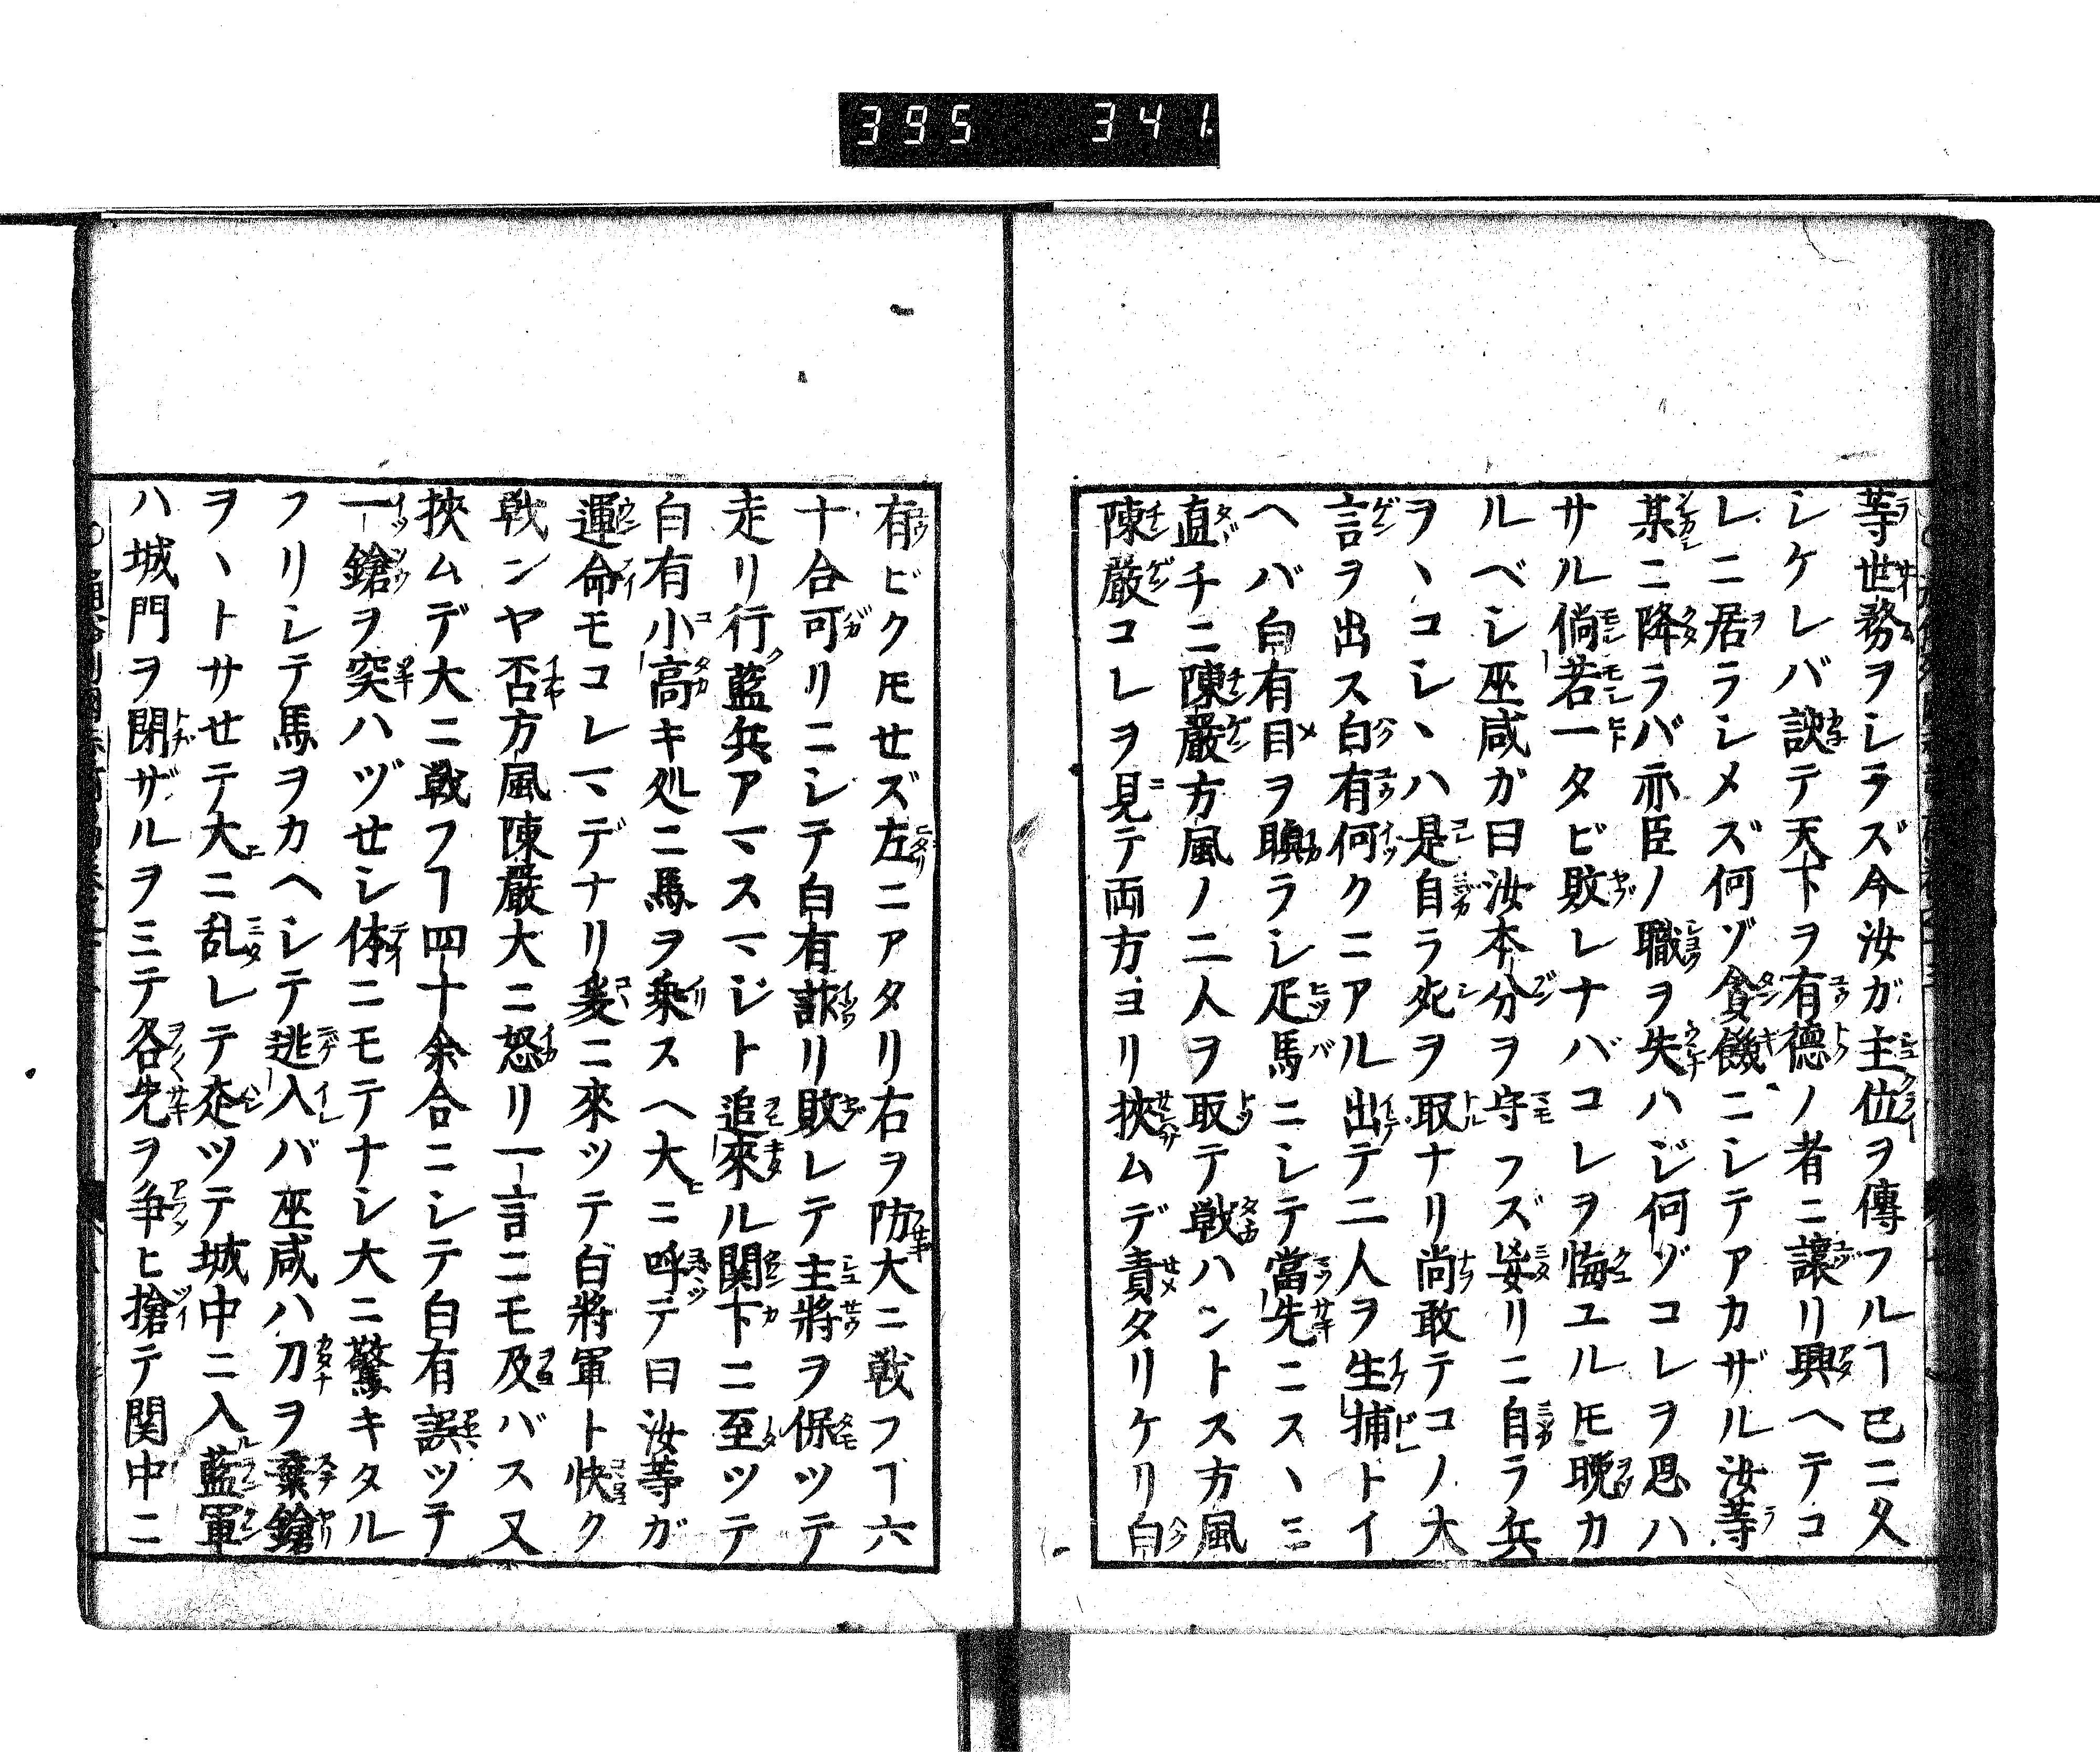 395 341
等世務ヲシラズ今汝ガ主位ヲ傳フルヿ已ニ久
シケレバ諛テ天下ヲ有德ノ者ニ讓リ興ヘテコ
レニ居ラシメズ何ゾ貪饑ニシテアカザル汝等
某ニ降ラバ亦臣ノ職ヲ失ハジ何ゾコレヲ思ハ
サル倘若一タビ敗レナバコレヲ悔ユルモ晩カ
ルベシ巫咸ガ曰汝本分ヲ守フズ妄リニ自ラ兵
ヲヽコレヽハ是自ラ死ヲ取ナリ尚敢テコノ大
言ヲ出ス白有何クニアル出テ二人ヲ生捕トイ
ヘバ白有目ヲ瞋ラシ疋馬ニシテ當先ニスヽミ
直チニ陳嚴方風ノ二人ヲ取テ戦ハントス方風
陳嚴コレヲ見テ両方ヨリ挾ムデ責タリケリ白
有ビクモせズ左ニアタリ右ヲ防大ニ戦フヿ六
十合可リニシテ白有詐リ敗レテ主將ヲ保ツテ
走リ行藍兵アマスマジト追來ル関下ニ至ツテ
白有小高キ処ニ馬ヲ乗スヘ大ニ呼デ曰汝等ガ
運命モコレマデナリ爰ニ來ツテ白將軍ト快ク
戦ンヤ否方風陳嚴大ニ怒リ一言ニモ及バス又
挾ムデ大ニ戦フヿ四十余合ニシテ白有誤ツテ
一鎗ヲ突ハヅせシ体ニモテナシ大ニ驚キタル
フリシテ馬ヲカヘシテ逃入バ巫咸ハ刀ヲ棄鎗
ヲヽトサせテ大ニ乱レテ迯ツテ城中ニ入藍軍
ハ城門ヲ閉ザルヲミテ各先ヲ争ヒ搶テ関中ニ